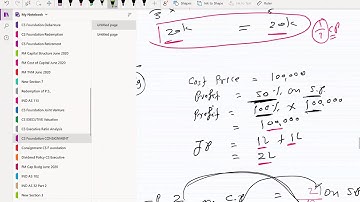 My Notebook
CS Foundation Debenture
CS Foundation Redemption
CS Foundation Retirement
FM Capital Structure June 2020
FM Cost of Capital June 2020
FM TVM June 2020
New Section 7
Redemption of P.S.
IND AS 115
CS Foundation Joint Venture
CS EXECUTIVE Valuation
CS Executive Ratio Analysis
CS Foundation CONSIGNMENT
Consignment CS Foundation
Dividend Policy CS Executive
FM Cap Budg June 2020
IND AS 102
IND AS 32 Part 2
New Section 3
Untitled page
Untitled page
20k = 20k
Cost Price = 100,000
Profit = 50% on S.P
Profit = 100% x 100,000
= 100,000
= 1L + 1L
= 2L
on S.P